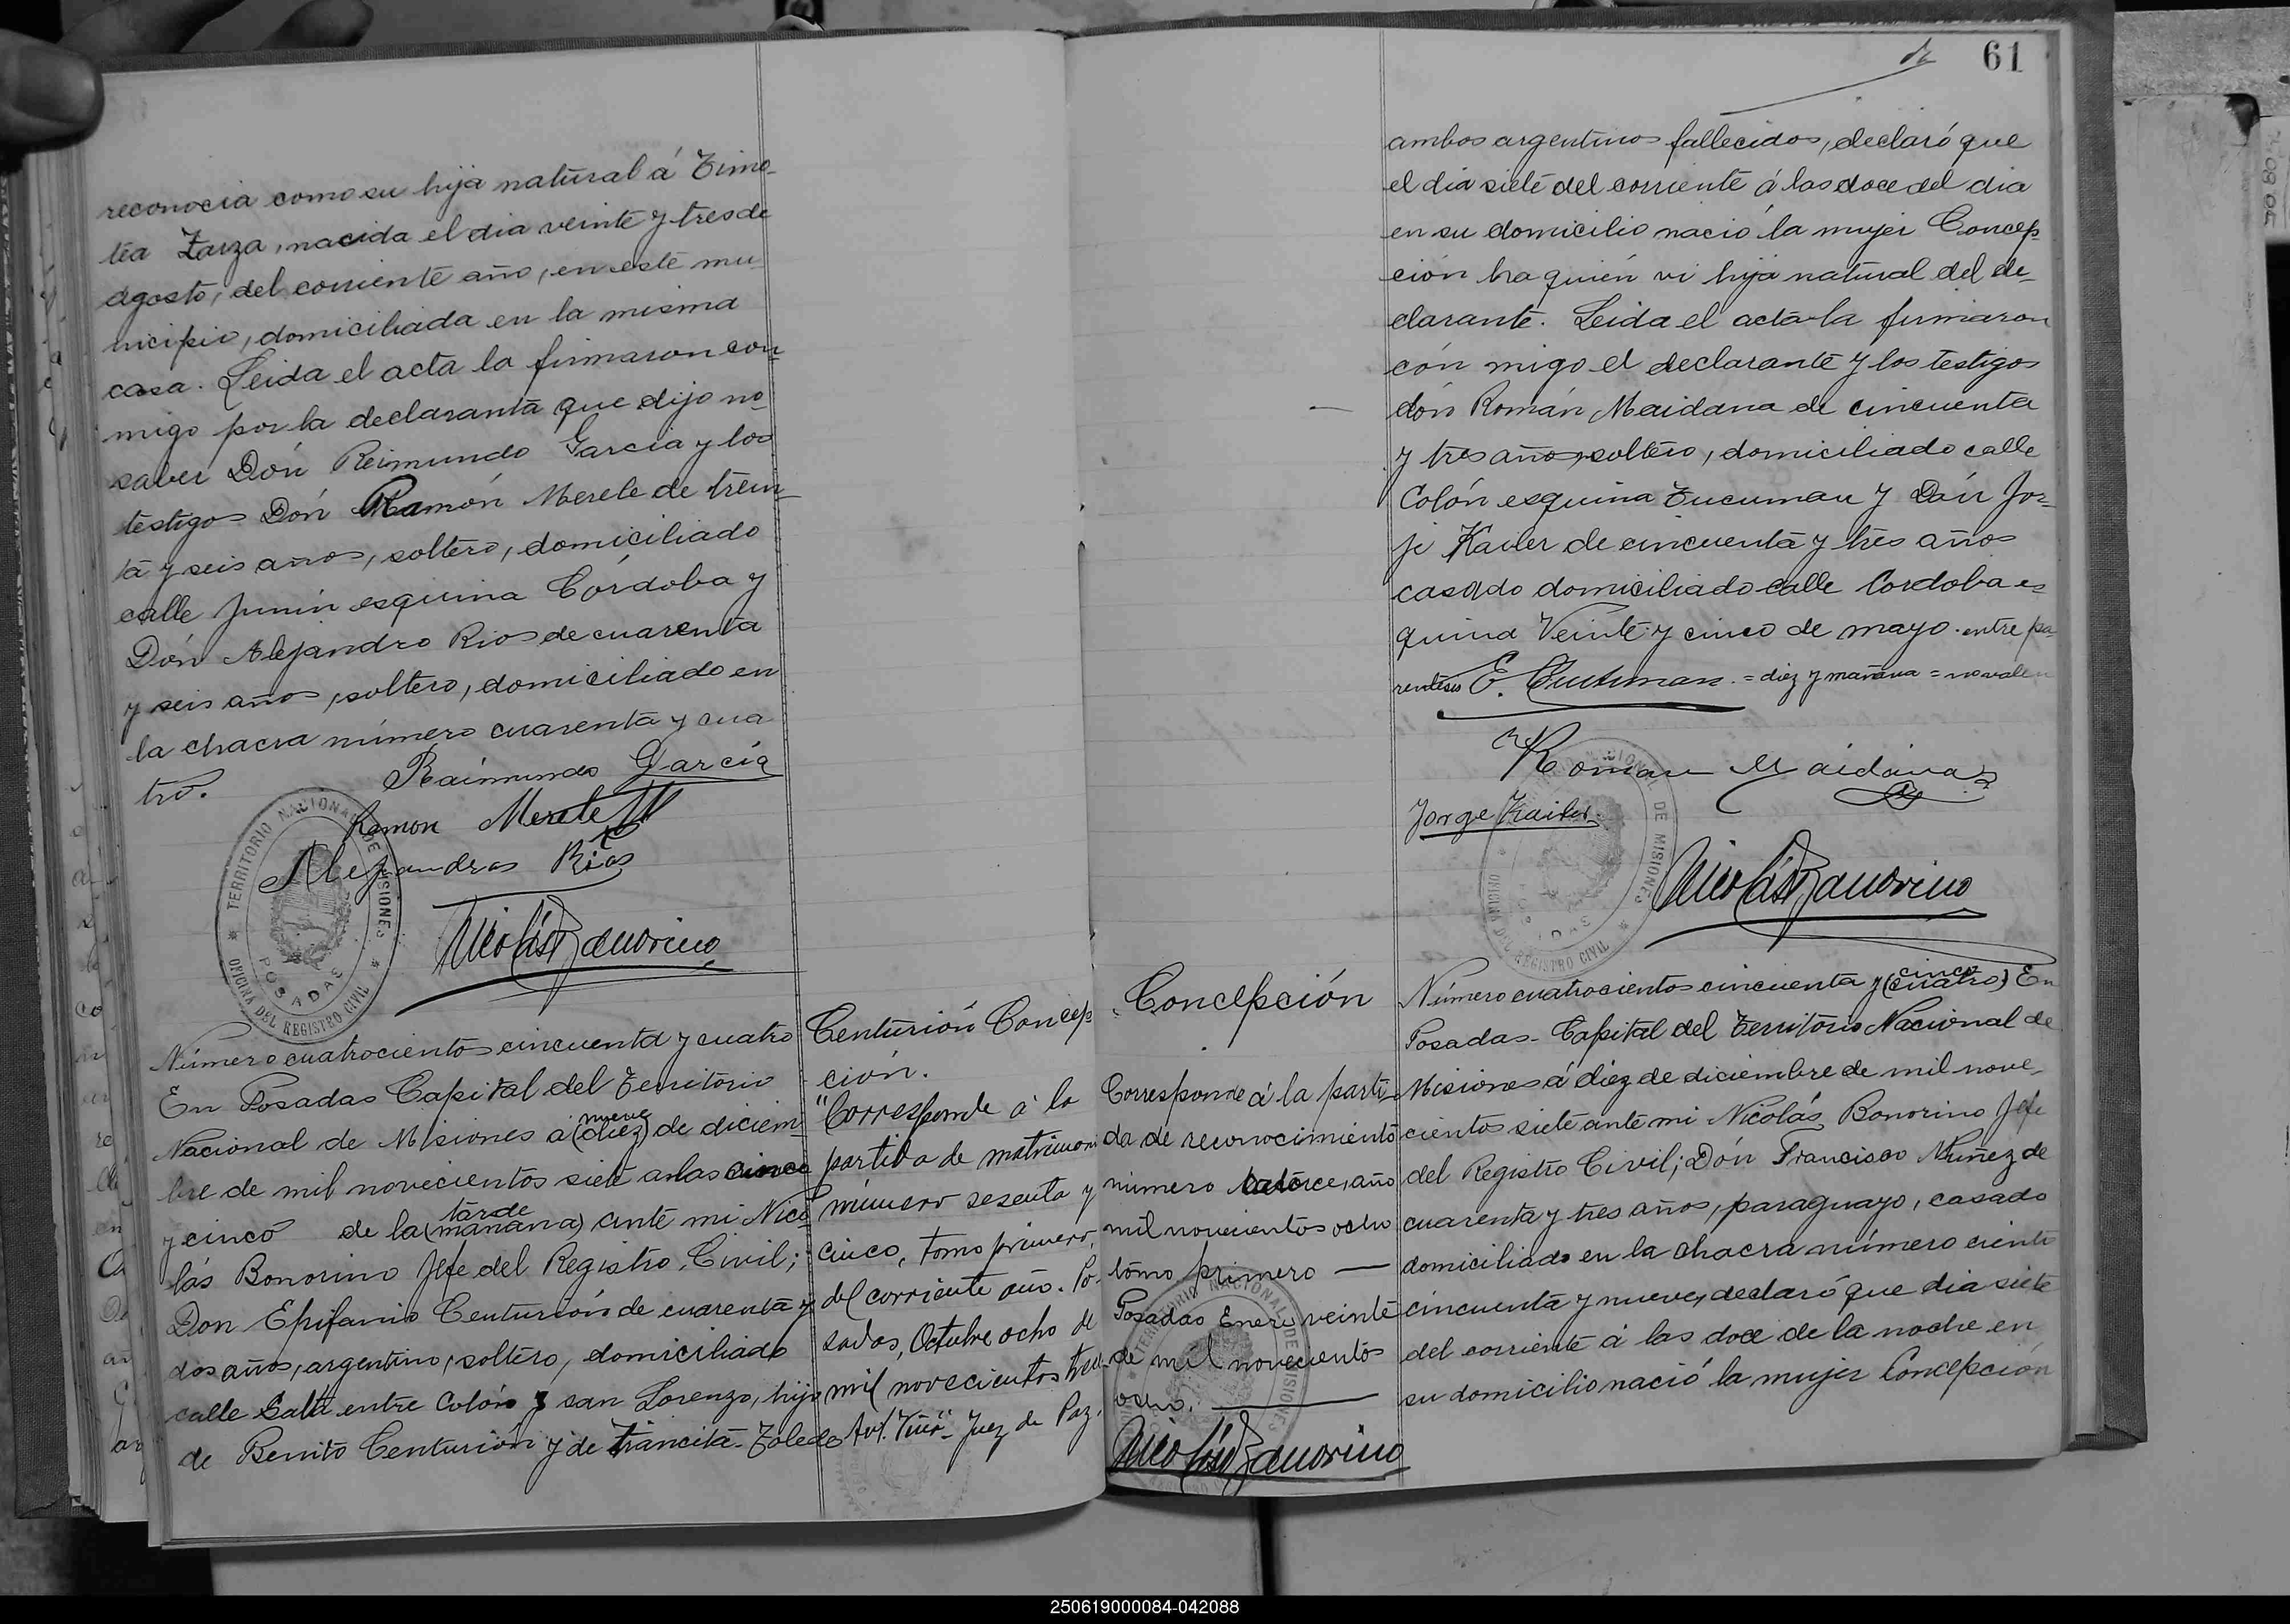 reconocia como su hija natural á Timo-
tea Zarza, nacida el dia veinte y tres de
agosto, del corriente año, en este mu-
nicipio, domiciliada en la misma
casa. Leida el acta la firmaron con-
migo por la declaranta que dijo no-
saver Dón Reimundo Garcia y los
testigos Dón Ramón Merele de trein-
ta y seis años, soltero, domiciliado
calle Junin esquina Córdoba y
Dón Alejandro Rios de cuarenta
y seis años, soltero, domiciliado en
la chacra número cuarenta y cua
tro.
Raimundo García
Ramon Merele
Alejandro Rios
Nicolás Bonorino
TERRITORIO NACIONAL DE MISIONES
OFICINA DEL REGISTRO CIVIL
POSADAS
Número cuatrocientos cincuenta y cuatro
En Posadas Capital del Territorio
nueve
Nacional de Misiones á (diez) de diciem-
bre de mil novecientos siete a las cinco
tarde
y cinco de la (mañana) ante mi Nico
lás Bonorino Jefe del Registro Civil;
Don Epifanio Centurión de cuarenta y
dos años, argentino, soltero, domiciliado
calle Salta entre Colón y san Lorenzo, hijo
de Benito Centurión y de Trancita Toledo
Centurión Concep
ción.
"Corresponde á la
partida de matrimoni
número sesenta y
cinco, tomo primero,
del corriente año. Po-
sadas, Octubre ocho de
mil novecientos trece
Juez de Paz.
61
ambos argentinos fallecidos, declaró que
el dia siete del corriente á las doce del dia
en su domicilio nació la mujer Concep
ción ha quién vi hija natural del de-
clarante. Leida el acta la firmaron
cón migo el declarante y los testigos
dón Román Maidana de cincuenta
y tres años, soltero, domiciliado calle
Colón esquina Tucuman y Dón Jor-
je Kaver de cincuenta y tres años
casado domiciliado calle Cordoba es-
quina Veinte y cinco de mayo. entre pa
rentesis = diez y mañana = no valen
Roman Maidana
Jorge
Nicolás Bonorino
TERRITORIO NACIONAL DE MISIONES
OFICINA DEL REGISTRO CIVIL
POSADAS
Concepción
Corresponde á la parti-
da de reconocimiento
número catorce, año
mil novecientos ocho
tomo primero —
Posadas Enero veinte
de mil novecientos
ocho. —
Nicolás Bonorino
cinco
Número cuatrocientos cincuenta y (cuatro) En
Posadas Capital del Territorio Nacional de
Misiones á diez de diciembre de mil nove-
cientos siete ante mi Nicolás Bonorino Jefe
del Registro Civil; Dón Francisco Nuñez de
cuarenta y tres años, paraguayo, casado
domiciliado en la chacra número ciento
cincuenta y nueve, declaró que dia siete
del corriente á las doce de la noche en
su domicilio nació la mujer Concepción
250619000084-042088